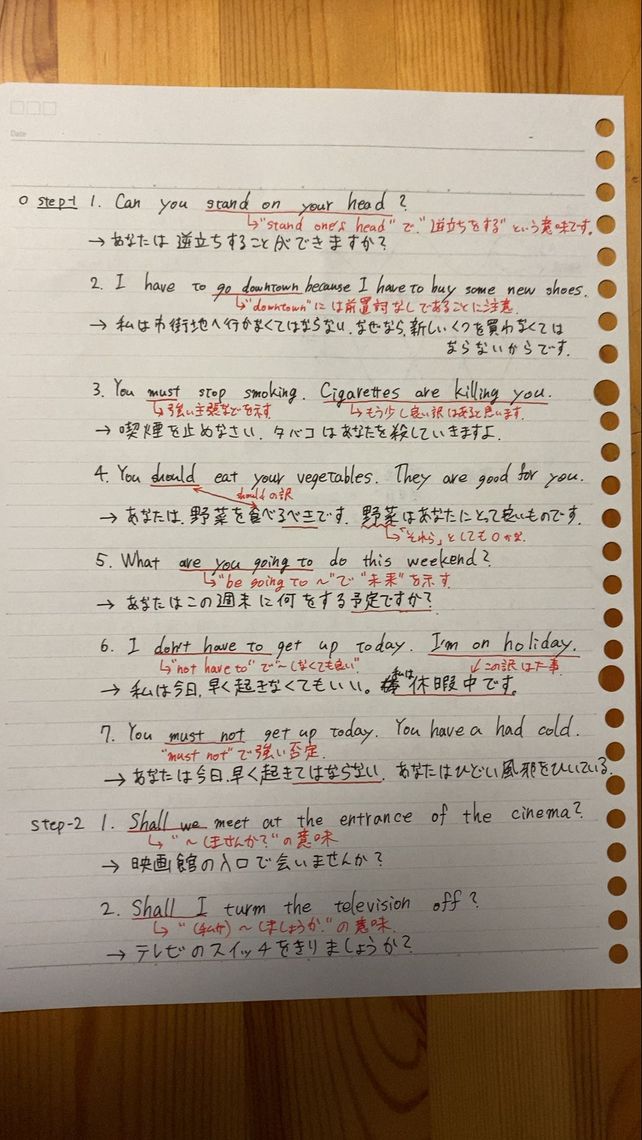 Date
○ step-1 1. Can you stand on your head?
↳"stand one's head"で、"逆立ちをする"という意味です。
→ あなたは逆立ちすることができますか?
2. I have to go downtown because I have to buy some new shoes.
↳"downtown"には前置詞なしであることに注意.
→ 私は市街地へ行かなくてはならない、なぜなら、新しいくつを買わなくては
ならないからです.
3. You must stop smoking. Cigarettes are killing you.
↳強い主張などを示す. ↳もう少し良い訳はあると思います.
→ 喫煙を止めなさい. タバコはあなたを殺していきますよ.
4. You should eat your vegetables. They are good for you.
shouldの訳
→ あなたは、野菜を食べるべきです. 野菜はあなたにとって良いものです.
↳「それら」としても○かな.
5. What are you going to do this weekend?
↳"be going to ~"で"未来"を示す
→ あなたはこの週末に何をする予定ですか?
6. I don't have to get up today. I'm on holiday.
↳"not have to"で"~しなくても良い" ↙この訳は大事.
→ 私は今日、早く起きなくてもいい。私は休暇中です.
7. You must not get up today. You have a had cold.
"must not"で強い否定.
→ あなたは今日、早く起きてはならない. あなたはひどい風邪をひいている.
step-2 1. Shall we meet at the entrance of the cinema?
↳"~しませんか?"の意味
→ 映画館の入口で会いませんか?
2. Shall I turm the television off?
↳"(私が)~しましょうか."の意味.
→ テレビのスイッチをきりましょうか?